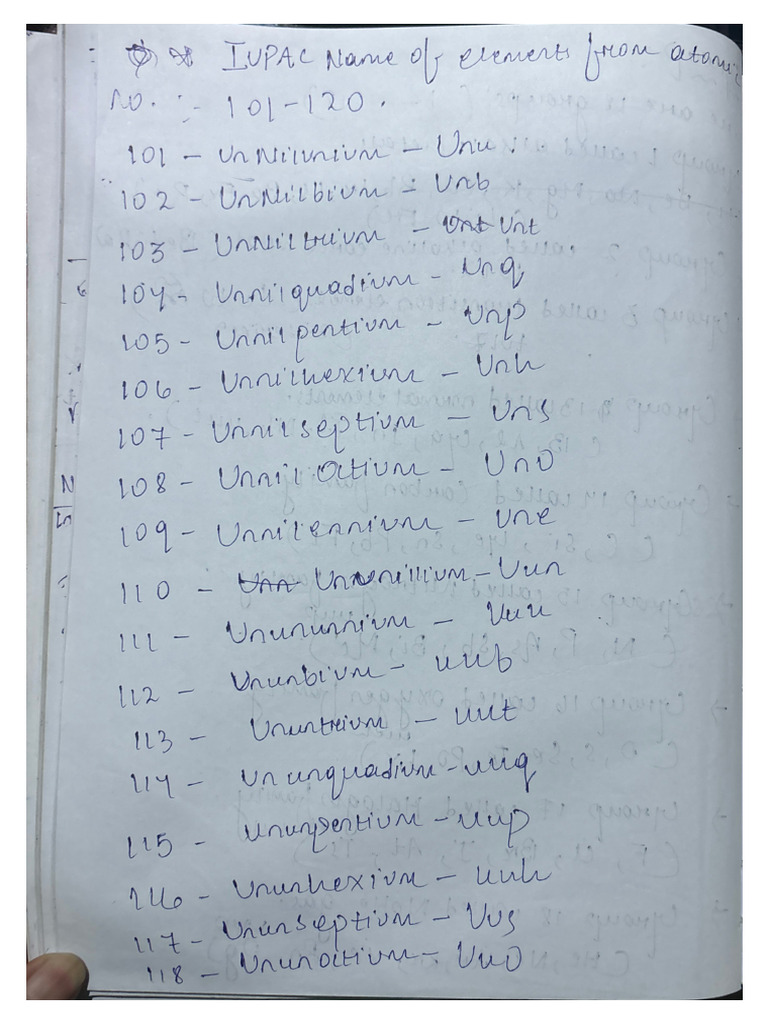 * IUPAC Name of elements from atomic
No. :- 101-120.
101 - UnNilunium - Unu.
102 - UnNilbium - Unb
103 - UnNiltrium - Unt Unt
104 - Unnilquadium - Unq
105 - Unnilpentium - Unp
106 - Unnilhexium - Unh
107 - Unnilseptium - Uns
108 - Unnil Octium - UnO
109 - Unnilennium - Une
110 - Unn Ununnillium - Uun
111 - Unununnium - Uuu
112 - Ununbium - uub
113 - Ununtrium - uut
114 - Un unquadium - uuq
115 - Ununpentium - uup
116 - Ununhexium - uuh
117 - Ununseptium - Uus
118 - Ununoctium - UuO